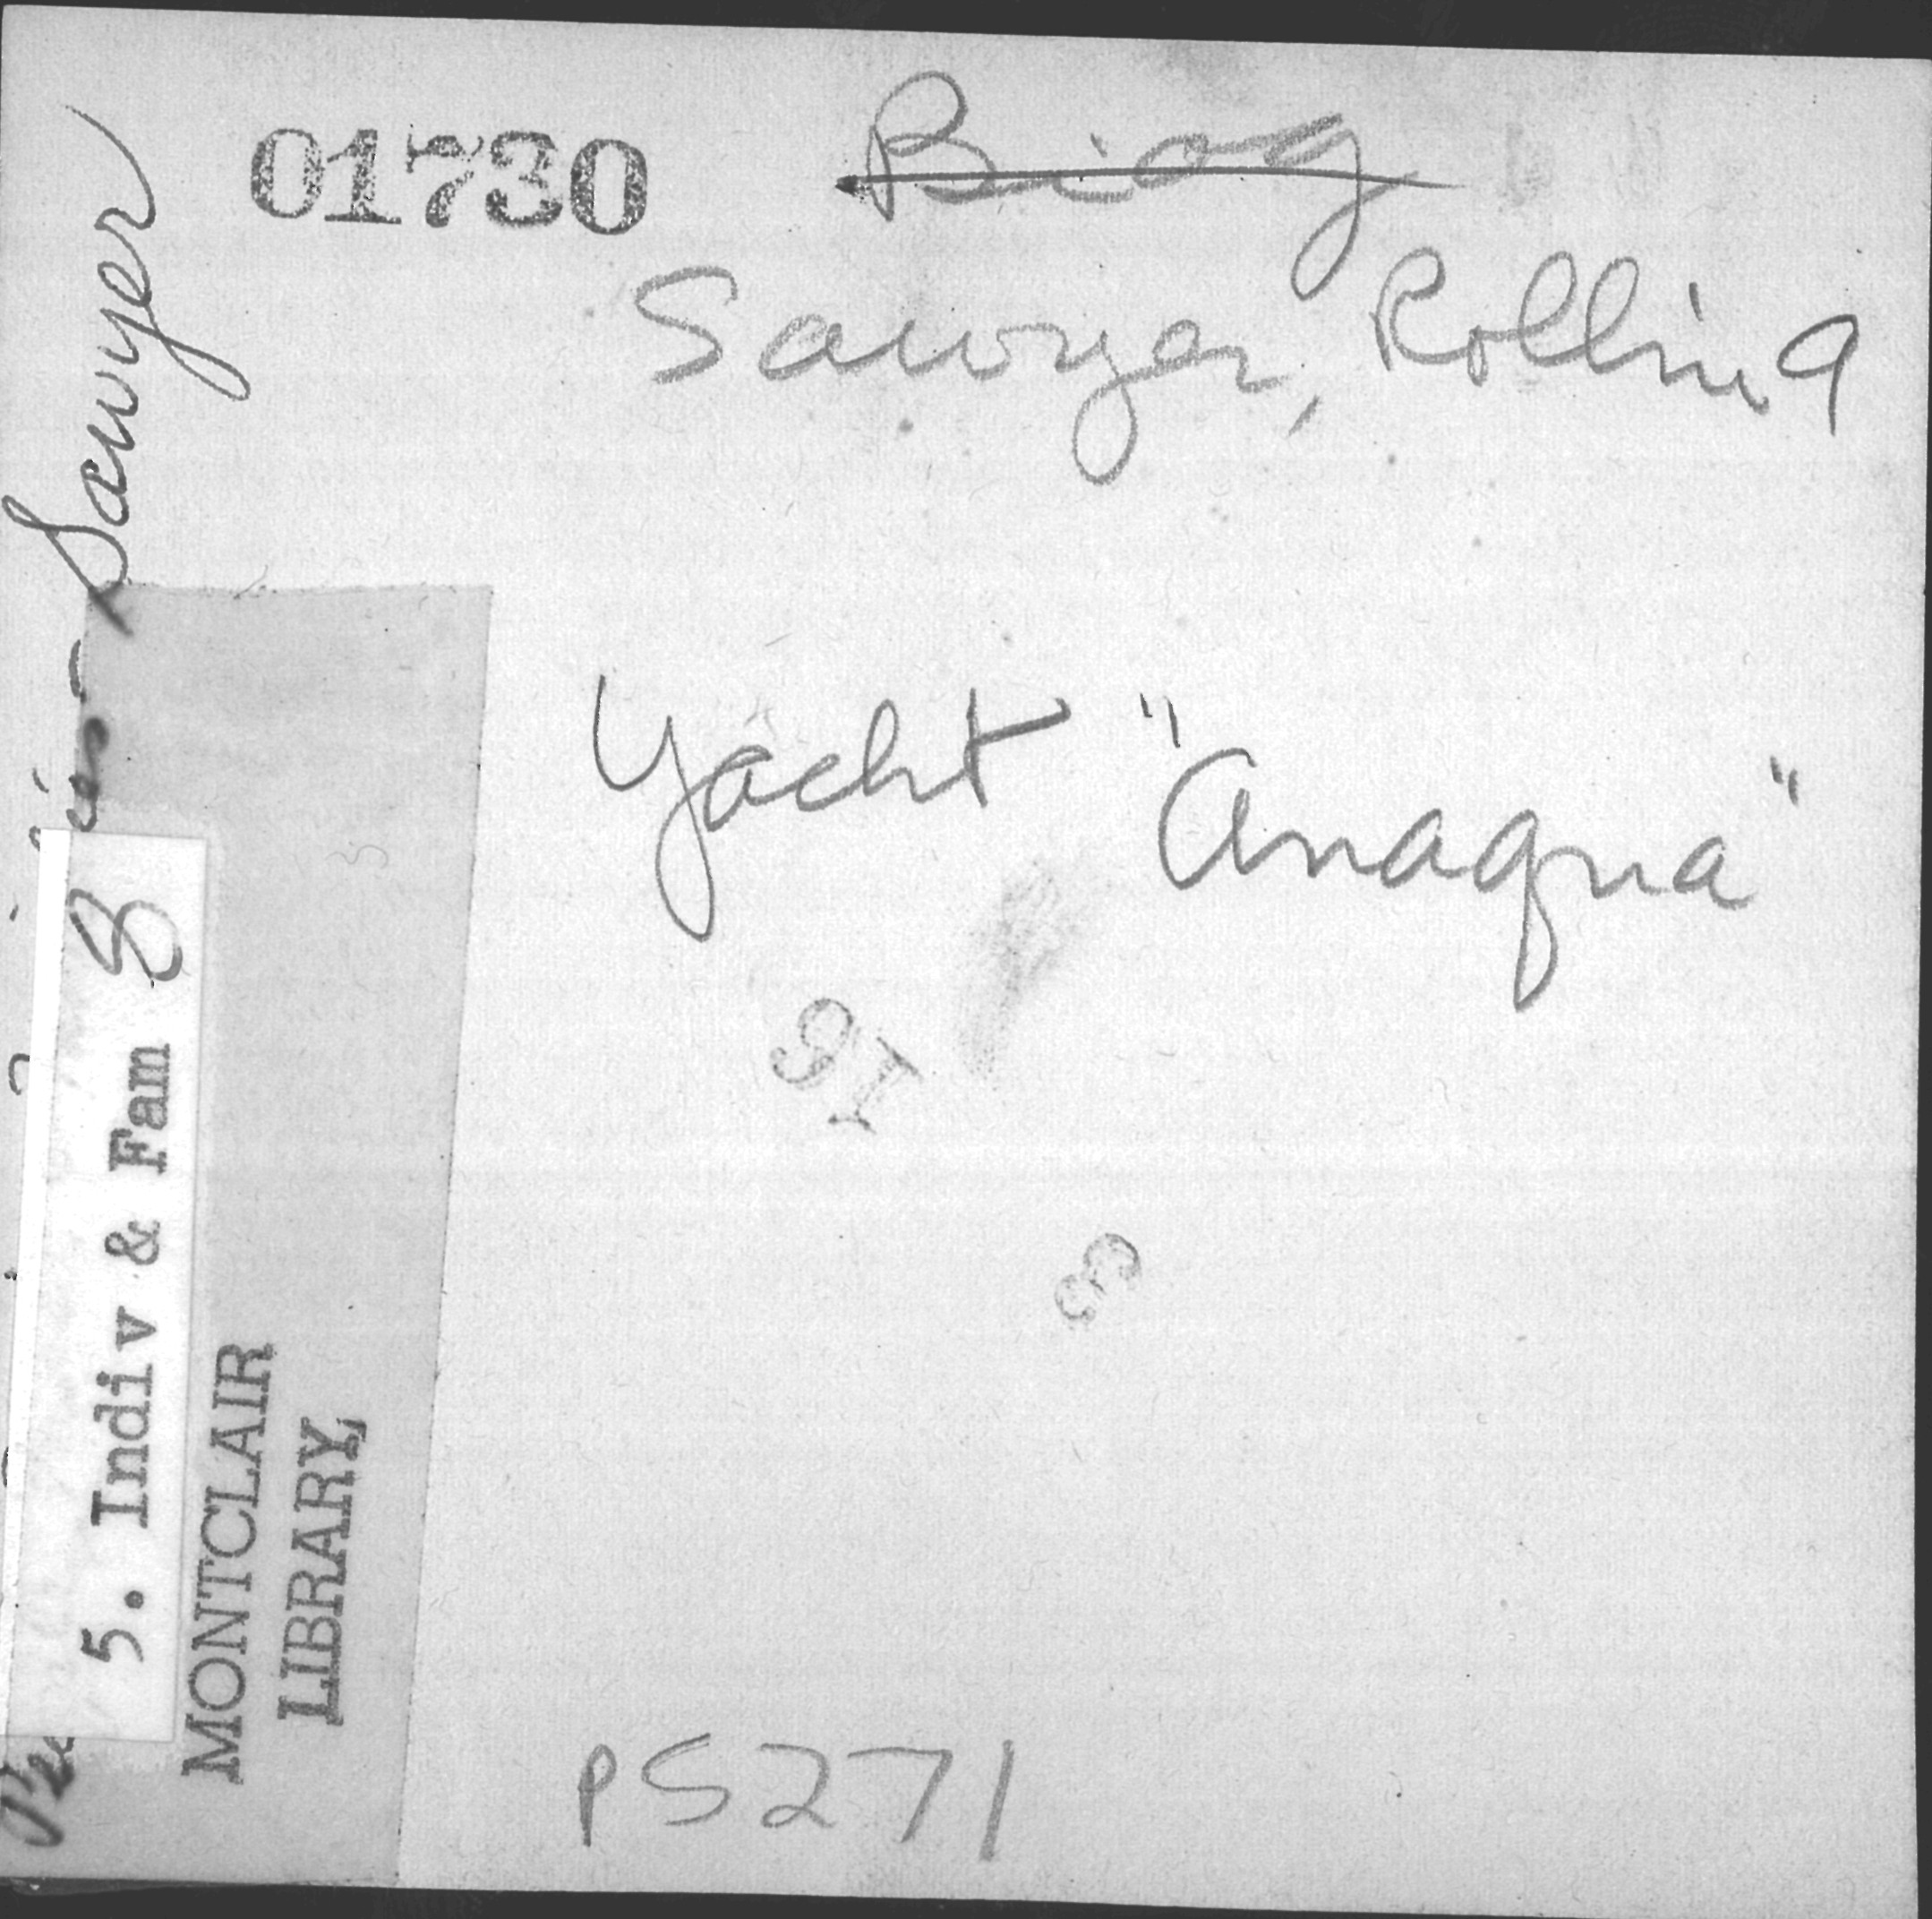 01730
Biog
Sawyer, Rollin
Yacht "Anaqua"
16
3
P5271
Sawyer
5. Indiv & Fam
MONTCLAIR
LIBRARY